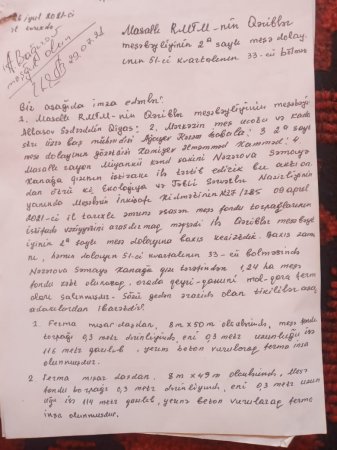 26 iyul 2021-ci
il tarixdə
29.07.21
Masallı RMTM-nin Qəriblər
meşəbəyliyinin 2 saylı meşə dolay-
ının 51-ci kvartalının 33-cü bölməs
Biz aşağıda imza edənlər:
1. Masallı RMTM-nin Qəriblər meşəbəyliyinin meşəbəyi
Abbasov Sədrəddin 2. Mərkəzin meşə və
üzrə baş mühəndisi Həsən 3. 2 saylı
meşə dolayının gözətçisi Məhəmməd
Masallı rayon Miyankü kənd sakini Nəzərova Səmayə
Xanağa qızının iştirakı ilə tərtib edirik bu aktı on-
dan ötrü ki, Ekologiya və Təbii Sərvətlər Nazirliyinin
yanında Meşələrin İnkişafı Xidmətinin N27/285 09 aprel
2021-ci il tarixli əmrinə əsasən meşə fondu torpaqlarının
istifadə vəziyyətini araşdırmaq məqsədi ilə Qəriblər meşəbəyl
iyinin 2 saylı meşə dolayına baxış keçirdik. Baxış zama
nı, həmin dolayın 51-ci kvartalının 33-cü bölməsində
Nəzərova Səmayə Xanağa qızı tərəfindən 1,24 ha meşə
fondu zəbt olunaraq, orada qeyri-qanuni mal-qara ferm
aları salınmışdır. Sözü gedən ərazidə olan tikililər aşa
ğıdakılardan ibarətdir:
1. Ferma mişar daşdan, 8m x 50m ölçülərində, meşə fondu
torpağı 0,3 metr dərinliyində, eni 0,3 metr uzunluğu isə
116 metr qazılıb, yerinə beton vurularaq ferma inşa
olunmuşdur.
2. Ferma mişar daşdan, 8m x 49m ölçülərində, meşə
fondu torpağı 0,3 metr dərinliyində, eni 0,3 metr uzun
luğu isə 114 metr qazılıb, yerinə beton vurularaq ferma
inşa olunmuşdur.